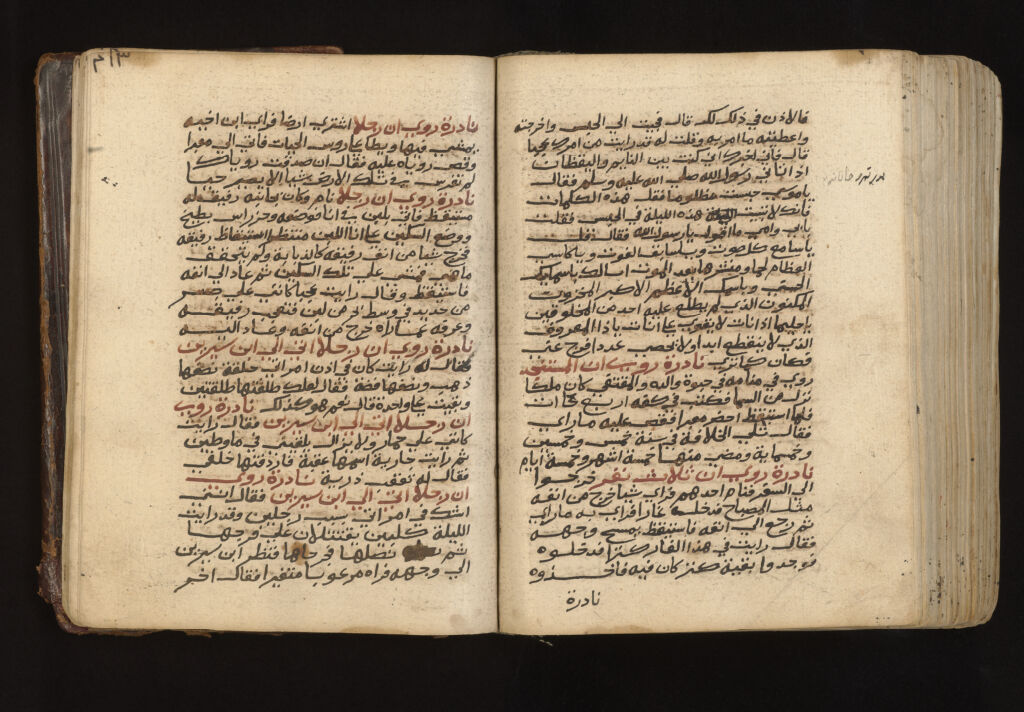 قال اذن في ذلك لك قال فجيت الي الحبس واخرجته
واعطيته ما امر به وقلت له قد رايت من امرك عجبا
قال فاني اخبرك اني كنت بين النايم واليقظان
اذ اتاني رسول الله صلي الله عليه وسلم فقال
يا موسي حبست مظلوما فقل هذه الكلمات
فانك لا تبيت هذه الليلة في الحبس فقلت
بابي وامي ما اقول يا رسول الله فقال قل
يا سامع كل صوت ويا سابق الفوت ويا كاسي
العظام لحما ومنشرها بعد الموت اسالك باسمايك
الحسني وباسمك الاعظم الاكبر المخزون
المكنون الذي لم يطلع عليه احد من المخلوقين
يا حليما ذا اناة لا يقوي علي اناته يا ذا المعروف
الذي لا ينقطع ابدا ولا يحصي عددا فرج عني
فكان كما تري نادرة روي ان المستنجد
روي في منامه في حيوة والده والمقتفي كان ملكا
نزل من السما فكتب في كفه اربع خاات
فلما استيقظ احضر معبرا فقص عليه ما راي
فقال تلي الخلافة في سنة خمس وخمسين
وخمسماية ومضي منها خمسة اشهر وخمسة ايام
نادرة روي ان ثلاث نفر خرجوا
الي السفر فنام احدهم فراي شيا خرج من انفه
مثل المصباح فدخل غارا فراي به ما راي
ثم رجع الي انفه فاستيقظ يمسح وجهه
فقال رايت في هذا الغار كنزا فدخلوه
فوجدوا بقية كنز كان فيه فاخذوه
نادرة
نادرة روي ان رجلا اشتري ارضا فراي ابن اخيه
يمشي فيها ويطا علي روس الحيات فاتي الي معبرا
وقص روياه عليه فقال ان صدقت روياك
لم تغرس في تلك الارض شيا الا يصير حيا
نادرة روي ان رجلا نام وكان بجانبه رفيق له
مستيقظ فاتي بلبن في انا فوضعه وحز راس بطيخ
ووضع السكين علي انا اللبن منتظر استيقاظ رفيقه
فخرج شيا من انف رفيقه كالذبابة ولم يتحقق
ما هي فمشي علي تلك السكين ثم عاد الي انفه
فاستيقظ وقال رايت عجبا كاني علي جسر
من حديد في وسط بحر من لبن فتعجب رفيقه
وعرفه بما راه خرج من انفه وعاد اليه
نادرة روي ان رجلا اتي الي ابن سيرين
فقال له رايت كان في اذن امراتي حلقة نصفها
ذهب ونصفها فضة فقال لعلك طلقتها طلقتين
وبقيت علي واحدة قال نعم هو كذلك نادرة روي
ان رجلا اتي الي ابن سيرين فقال رايت
كاني علي حمار ولا نزال في ما وطين
ثم رايت جارية اسمها عقبة فاردفتها خلفي
فقال له تعقب ذرية نادرة روي
ان رجلا اتي الي ابن سيرين فقال انني
اشك في امراتي بسبب رجلين وقد رايت
الليلة كلبين يقتتلان علي فرجها
ثم فرجاها فنظر ابن سيرين
الي وجهه فراه مرعوبا متغيرا فقال اخبر